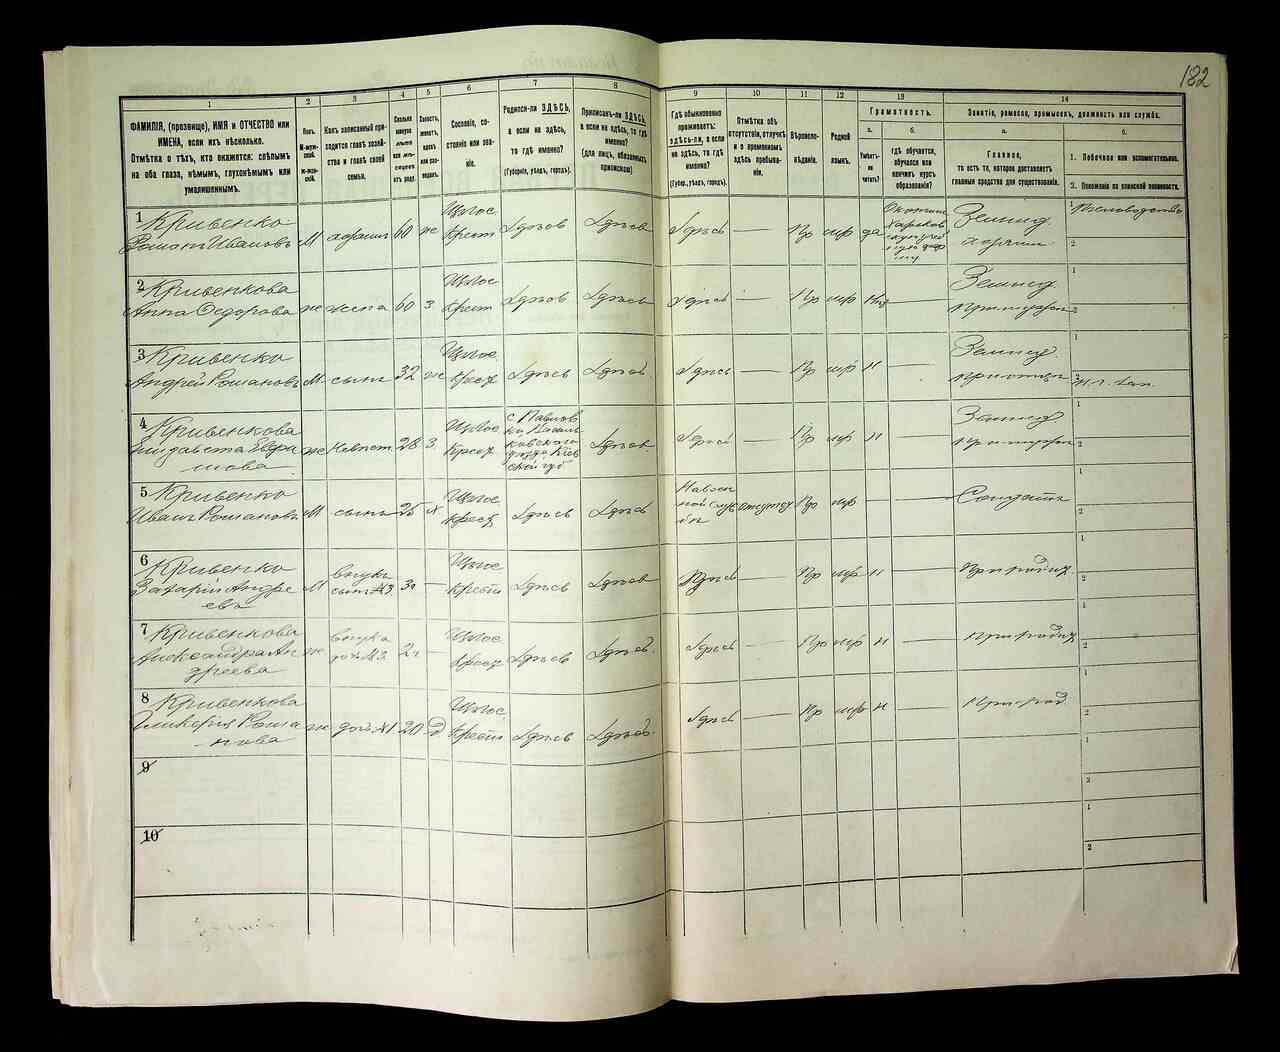 182
1
2
3
4
5
6
7
8
9
10
11
12
13
14
ФАМИЛІЯ, (прозвище), ИМЯ и ОТЧЕСТВО или
ИМЕНА, если ихъ нѣсколько.
Отмѣтка о тѣхъ, кто окажется: слѣпымъ
на оба глаза, нѣмымъ, глухонѣмымъ или
умалишеннымъ.
Полъ.
М-муж-
ской.
ж-жен-
скій.
Какъ записанный при-
ходится главѣ хозяй-
ства и главѣ своей
семьи.
Сколько
минуло
лѣтъ
или мѣ-
сяцевъ
отъ роду.
Холостъ,
женатъ,
вдовъ
или раз-
веденъ.
Сословіе, со-
стояніе или зва-
ніе.
Родился-ли ЗДѢСЬ,
а если не здѣсь,
то гдѣ именно?
(Губернія, уѣздъ, городъ).
Приписанъ-ли ЗДѢСЬ,
а если не здѣсь, то гдѣ
именно?
(для лицъ, обязанныхъ
припискою)
Гдѣ обыкновенно
проживаетъ:
здѣсь-ли, а если
не здѣсь, то гдѣ
именно?
(Губер., уѣздъ, городъ).
Отмѣтка объ
отсутствіи, отлучкѣ
и о временномъ
здѣсь пребыва-
ніи.
Вѣроиспо-
вѣданіе.
Родной
языкъ.
Грамотность.
а.
Умѣетъ-
ли
читать?
б.
гдѣ обучается,
обучался или
кончилъ курсъ
образованія?
Занятіе, ремесло, промыселъ, должность или служба.
а.
Главное,
то есть то, которое доставляетъ
главныя средства для существованія.
б.
1. Побочное или вспомогательное.
2. Положеніе по воинской повинности.
1 Кривенко
Романъ Ивановъ М хозяинъ 60 ж Щлос. Крест Здѣсь Здѣсь Здѣсь — Пр мр да Земльд. хозяинъ 1 Пчеловодство 2
2 Кривенкова
Анна Федорова ж жена 60 З Щлос Крест Здѣсь Здѣсь Здѣсь — Пр мр Земльд. 1 2
3 Кривенко
Андрей Романовъ М сынъ 32 ж Щлос Крест Здѣсь Здѣсь Здѣсь — Пр мр н — Земльд. 1 2
4 Кривенкова ж Невѣст 28 З Щлос Крест Здѣсь Здѣсь — Пр мр н — Земльд 1 2
5 Кривенко
Иванъ Романовъ М сынъ 25 х Щлос Крест Здѣсь Здѣсь Пр мр — — Солдатъ 1 2
6 Кривенко
Захарій Андре
евъ М внукъ сынъ №3. Щлос Крест Здѣсь Здѣсь Здѣсь — Пр мр н — При родит. 1 2
7 Кривенкова
Александра Ан
дреева ж внука дочь №3. Щлос Крест Здѣсь Здѣсь Здѣсь — Пр мр н — При родит 1 2
8 Кривенкова
Гликерія Рома
нова ж доч №1 20 Д Щлос Крест Здѣсь Здѣсь Здѣсь — Пр мр н — При род 1 2
9 1 2
10 1 2